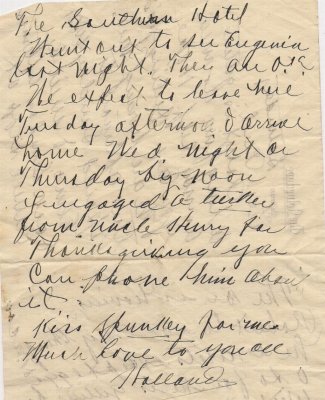 The Southern Hotel
Went out to see Eugenia
last night. They are O.K.
We expect to leave here
Tuesday afternoon & arrive
home Wed night or
Thursday by noon
I engaged a turkey
from Uncle Henry for
Thanksgiving you
Can phone him about
it
Kiss Spunkey for me
Much love to you all
Holland